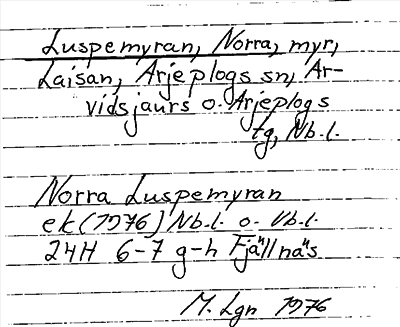 Luspemyran, Norra, myr,
Laisan, Arjeplogs sn, Ar-
vidsjaurs o. Arjeplogs
tg, Nb.l.
Norra Luspemyran
ek (1976) Nb.l. o. Vb.l.
24H 6-7 g-h Fjällnäs
M. Lgn 1976